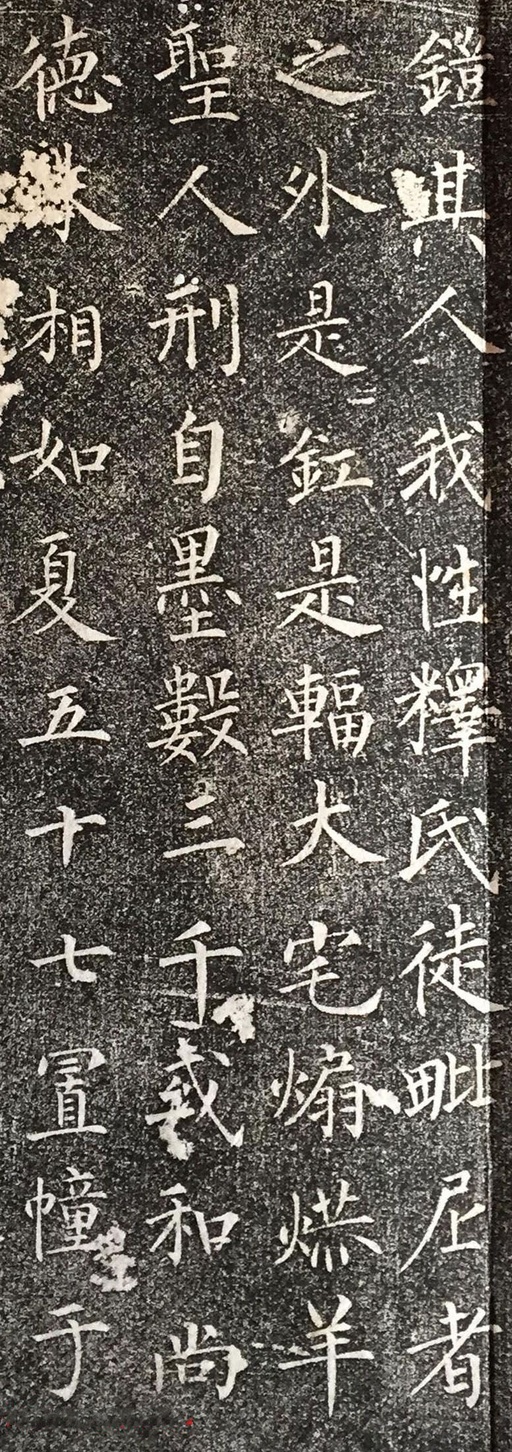 鎧其人我性釋氏徒毗尼者
之外是釭是輻大宅煽羊
聖人刑自墨數三千哉和尚
德相如夏五十七置幢于